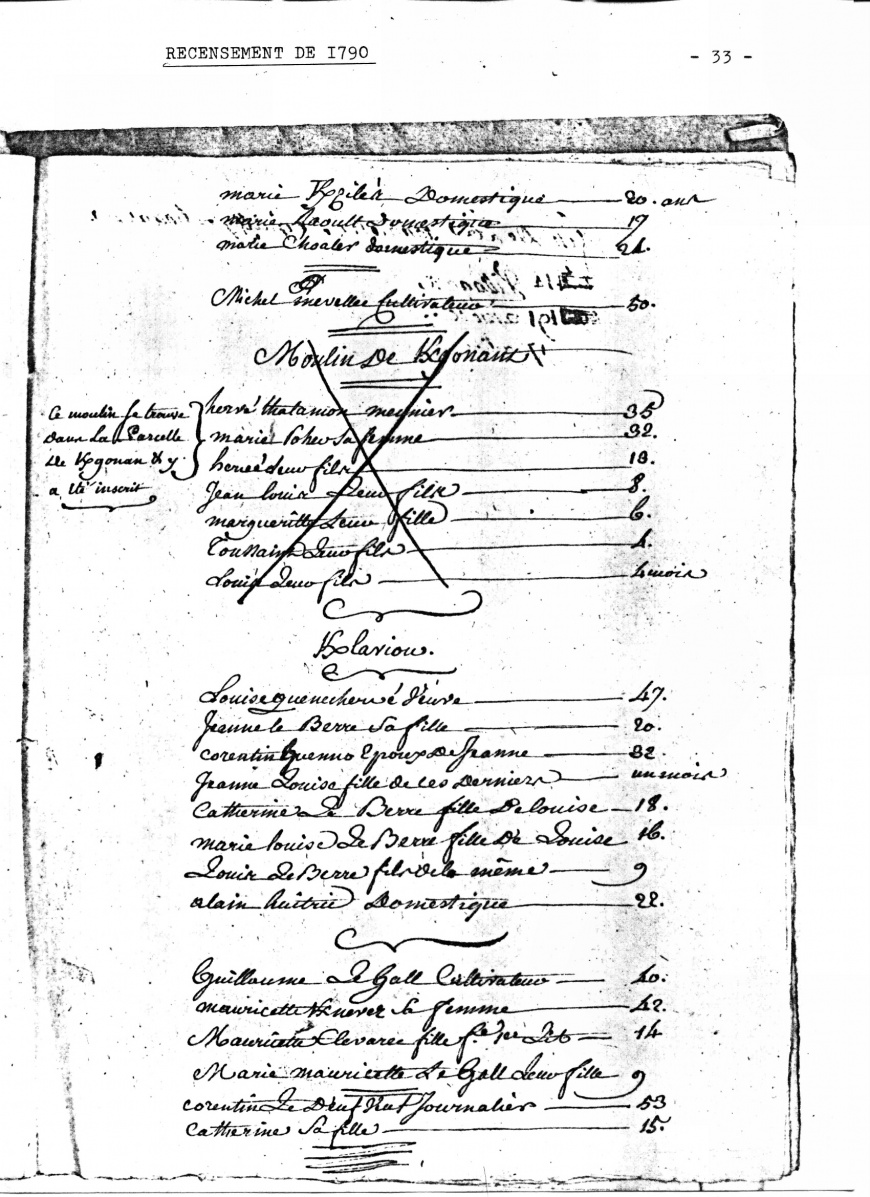 RECENSEMENT DE I790
- 33 -
marie Kgiler Domestique 20. ans
marie Raoult Domestique 17
marie Choaler domestique 21.
Michel Prevellec Cultivateur 50.
Moulin De Kgonant
hervé thalamon meunier 35
marie Poher sa femme 32.
hervé Leur fils 18.
Jean louis Leur fils 8.
margueritte Leur fille 6.
Toussaint Leur fils 4.
Louis Leur fils 4 mois
Ce moulin se trouve
Dans La Parcelle
De Kgonan & y
a été inscrit
Klariou.
Louise quenecherve veuve 47.
Jeanne le Berre sa fille 20.
corentin guenno Epoux De Jeanne 32
Jeanne Louise fille de ces Derniers un mois
Catherine Le Berre fille De louise 18.
marie louise Le Berre fille De Louise 16.
Louis Le Berre fils de la même 9
alain huitric Domestique 22.
Guillaume Le Gall Cultivateur 40.
mauricette Knevez sa femme 42.
Mauricette Clevarec fille 1er Lit 14
Marie mauricette Le Gall Leur fille 9
corentin Le Journalier 53
Catherine sa fille 15.